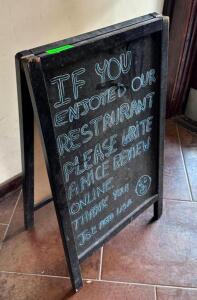 IF YOU
ENJOYED OUR
RESTAURANT
PLEASE WRITE
A NICE REVIEW
ONLINE.
THANK YOU